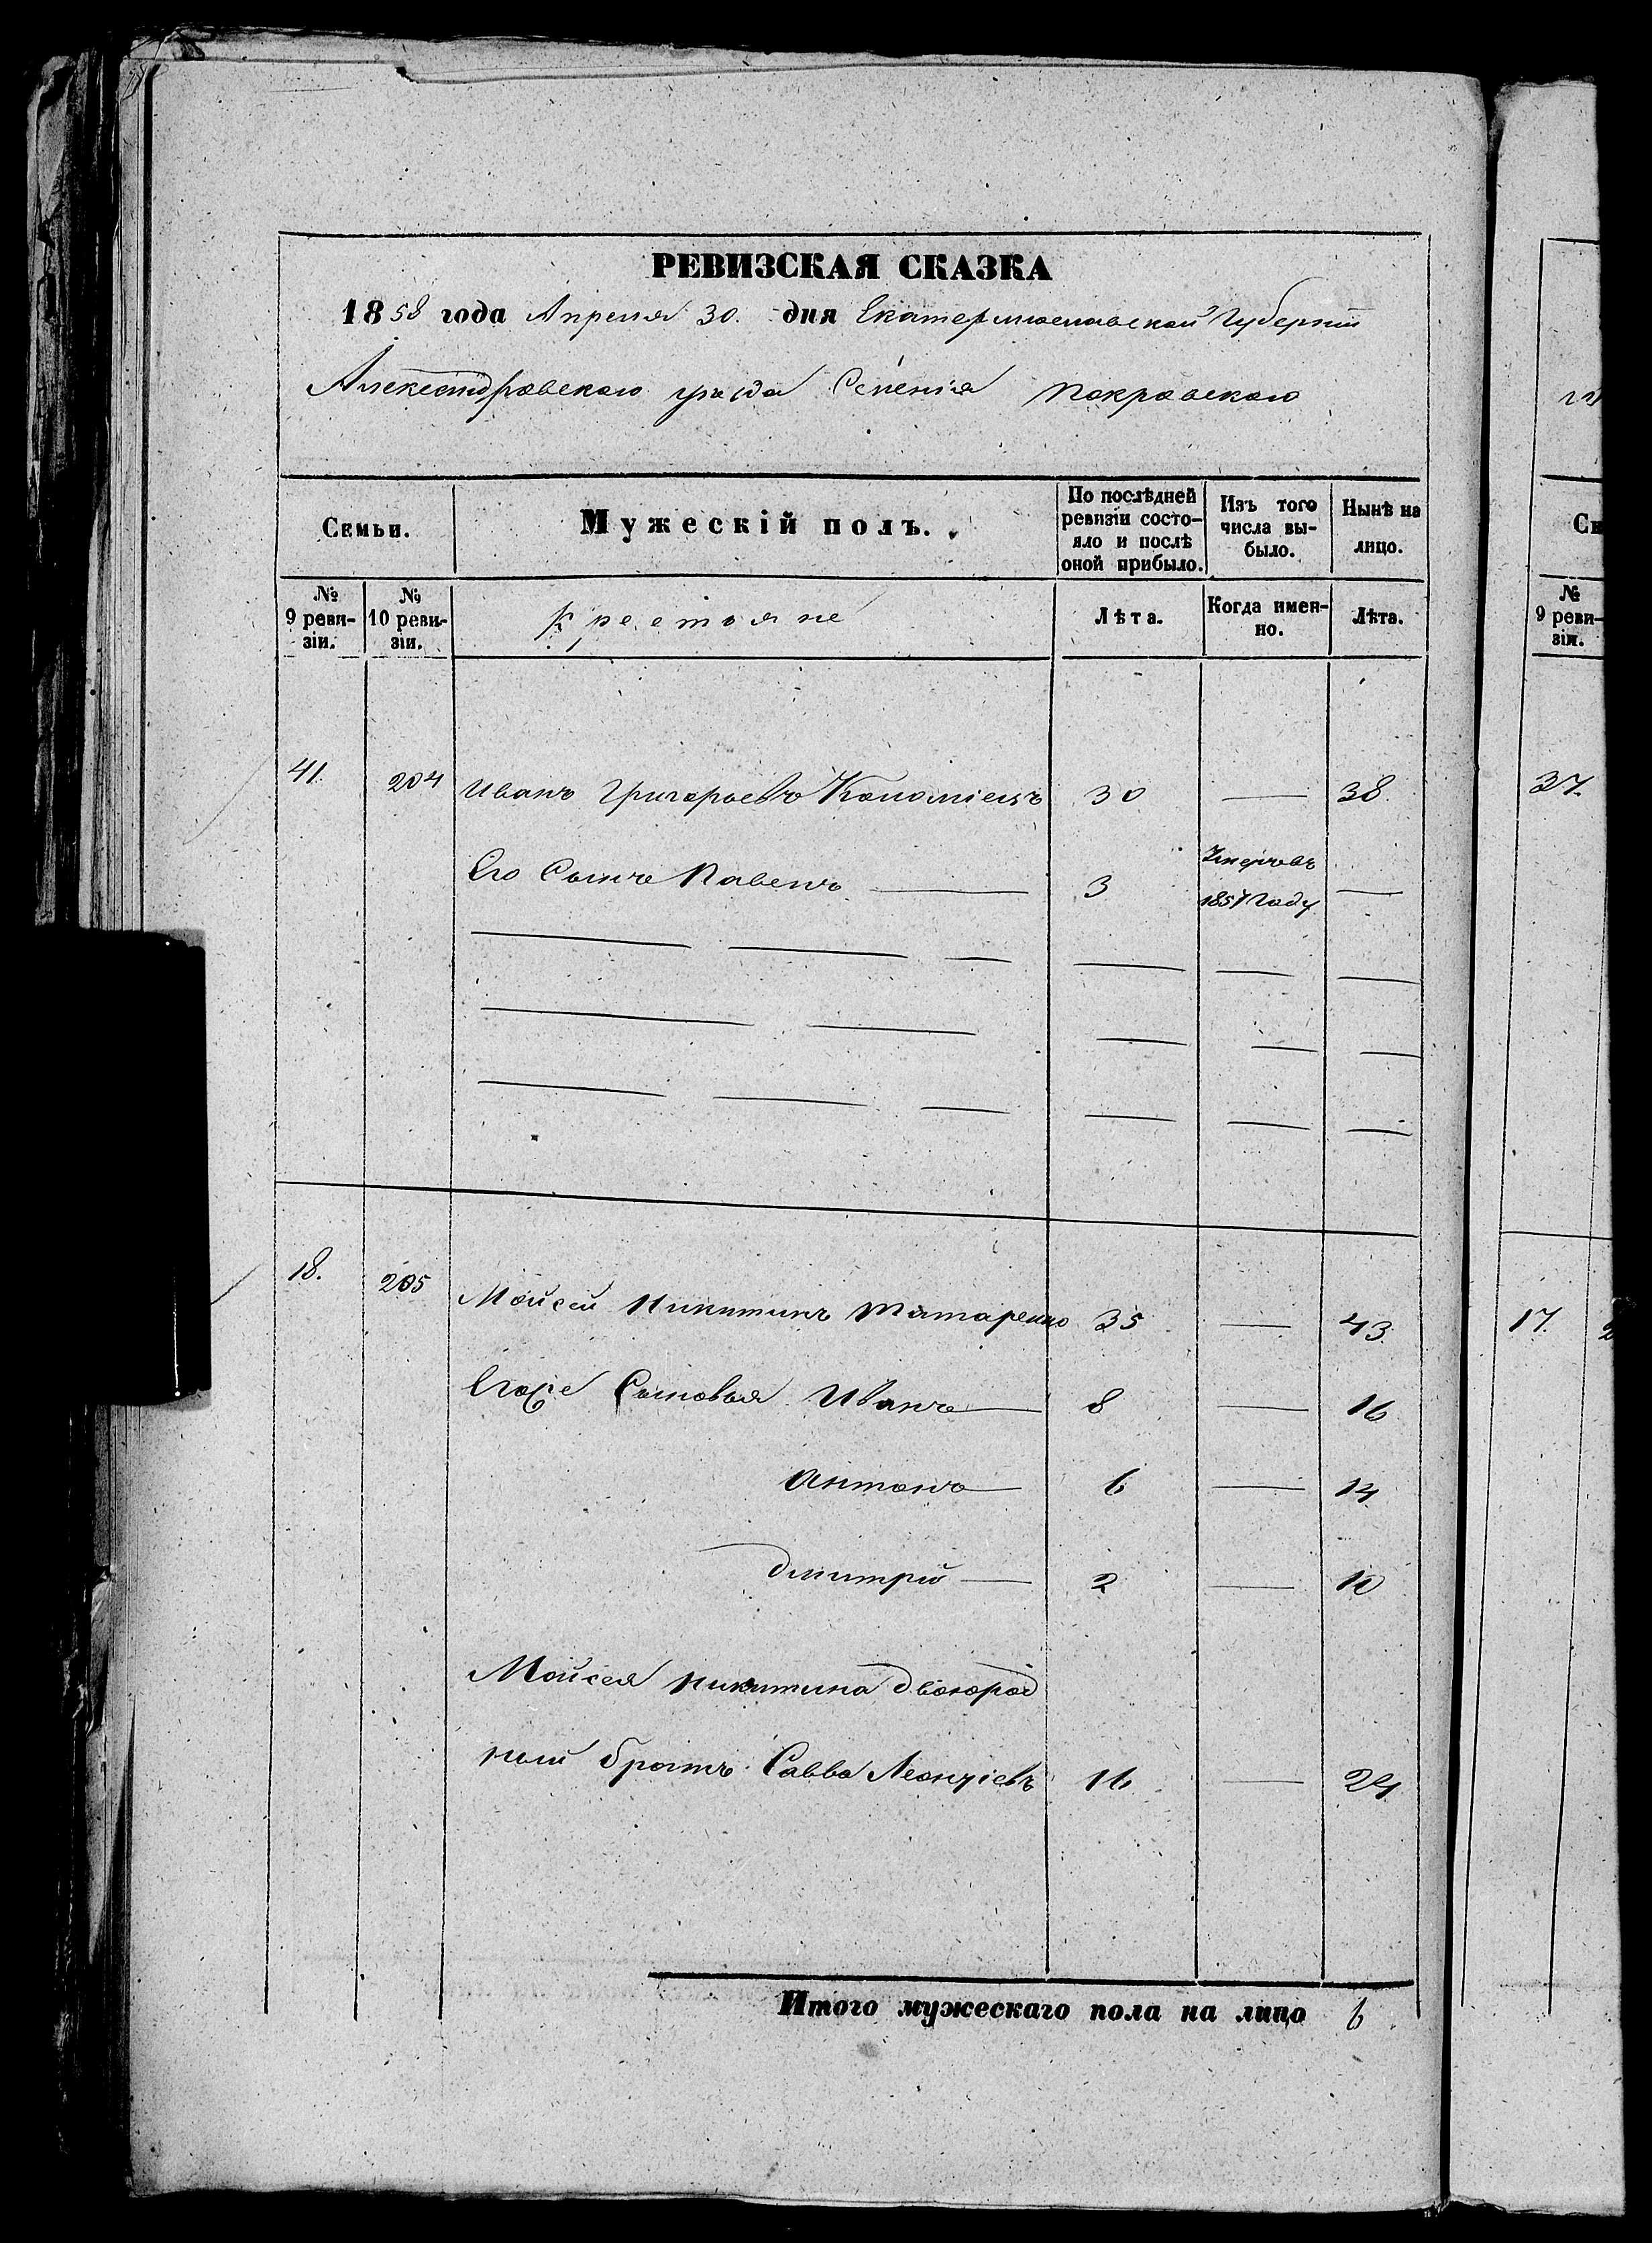 РЕВИЗСКАЯ СКАЗКА
1858 года Апреля 30. дня Екатеринославской Губернии
Александровского уезда Селения Покровского
Семьи.
Мужескій полъ.
По послѣдней ревизіи состо-
яло и послѣ
оной прибыло.
Изъ того
числа вы-
было.
Нынѣ на
лицо.
№
9 реви-
зіи.
№
10 реви-
зіи.
Крестьяне
Лѣта.
Когда имен-
но.
Лѣта.
41. 204 Иванъ Григорьевъ Коломіецъ 30 — 38.
Его Сынъ Павелъ — 3 Умеръ въ 1857 Году —
18. 205 Мойсей Никитинъ Татаренко 35 — 43.
Егоже Сыновья Иванъ — 8 — 16
Антонъ — 6 — 14
Дмитрій — 2 — 10
Мойсея Никитина двоюрод
ный братъ Савва Леонтіевъ 16. — 24.
Итого мужескаго пола на лицо 6.
Се
№
9 реви-
зіи.
37.
17. 2